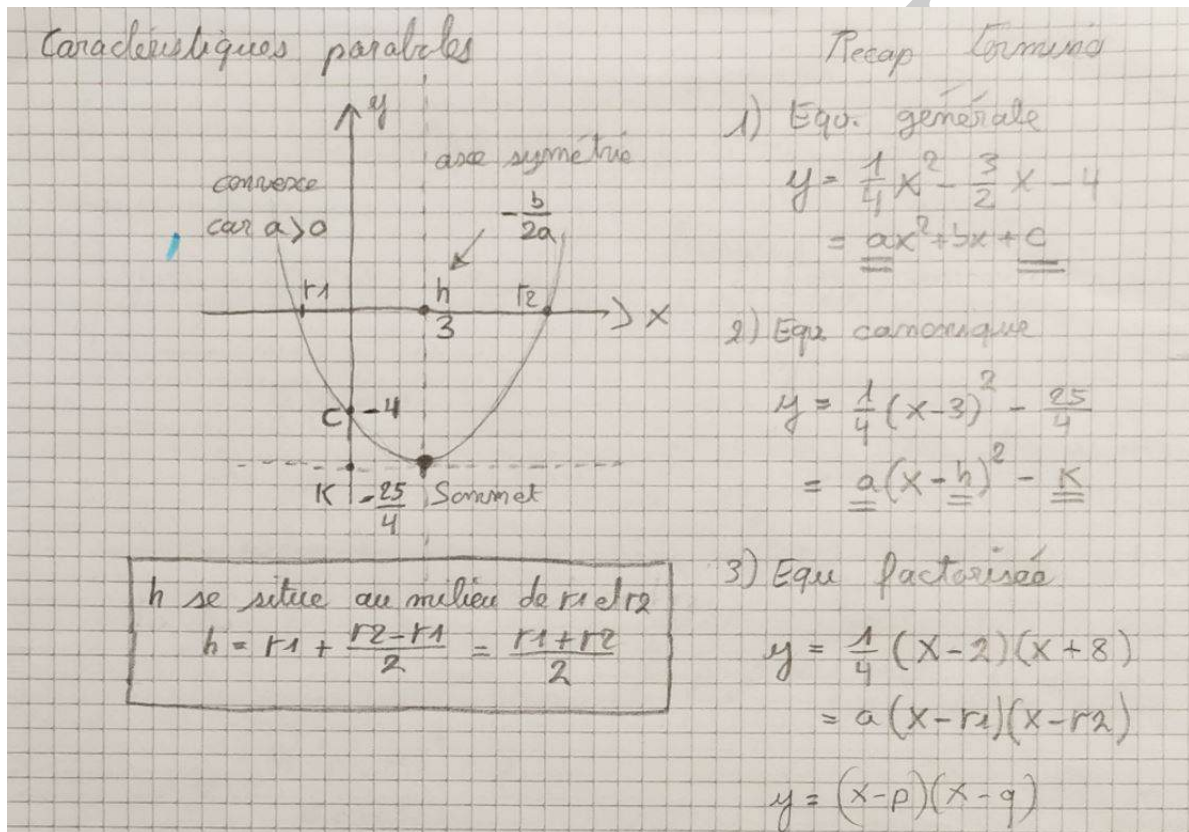 Caractéristiques paraboles
y
axe symétrie
convexe
car a>0
-b/2a
r1
h
r2
x
3
C
-4
K
-25/4
Sommet
h se situe au milieu de r1 et r2
h = r1 + (r2-r1)/2 = (r1+r2)/2
Recap
1) Equ. générale
y = 1/4 x² - 3/2 x - 4
= ax²+bx+c
2) Equ canonique
y = 1/4 (x-3)² - 25/4
= a(x-h)² - K
3) Equ factorisée
y = 1/4 (x-2)(x+8)
= a(x-r1)(x-r2)
y = (x-p)(x-q)